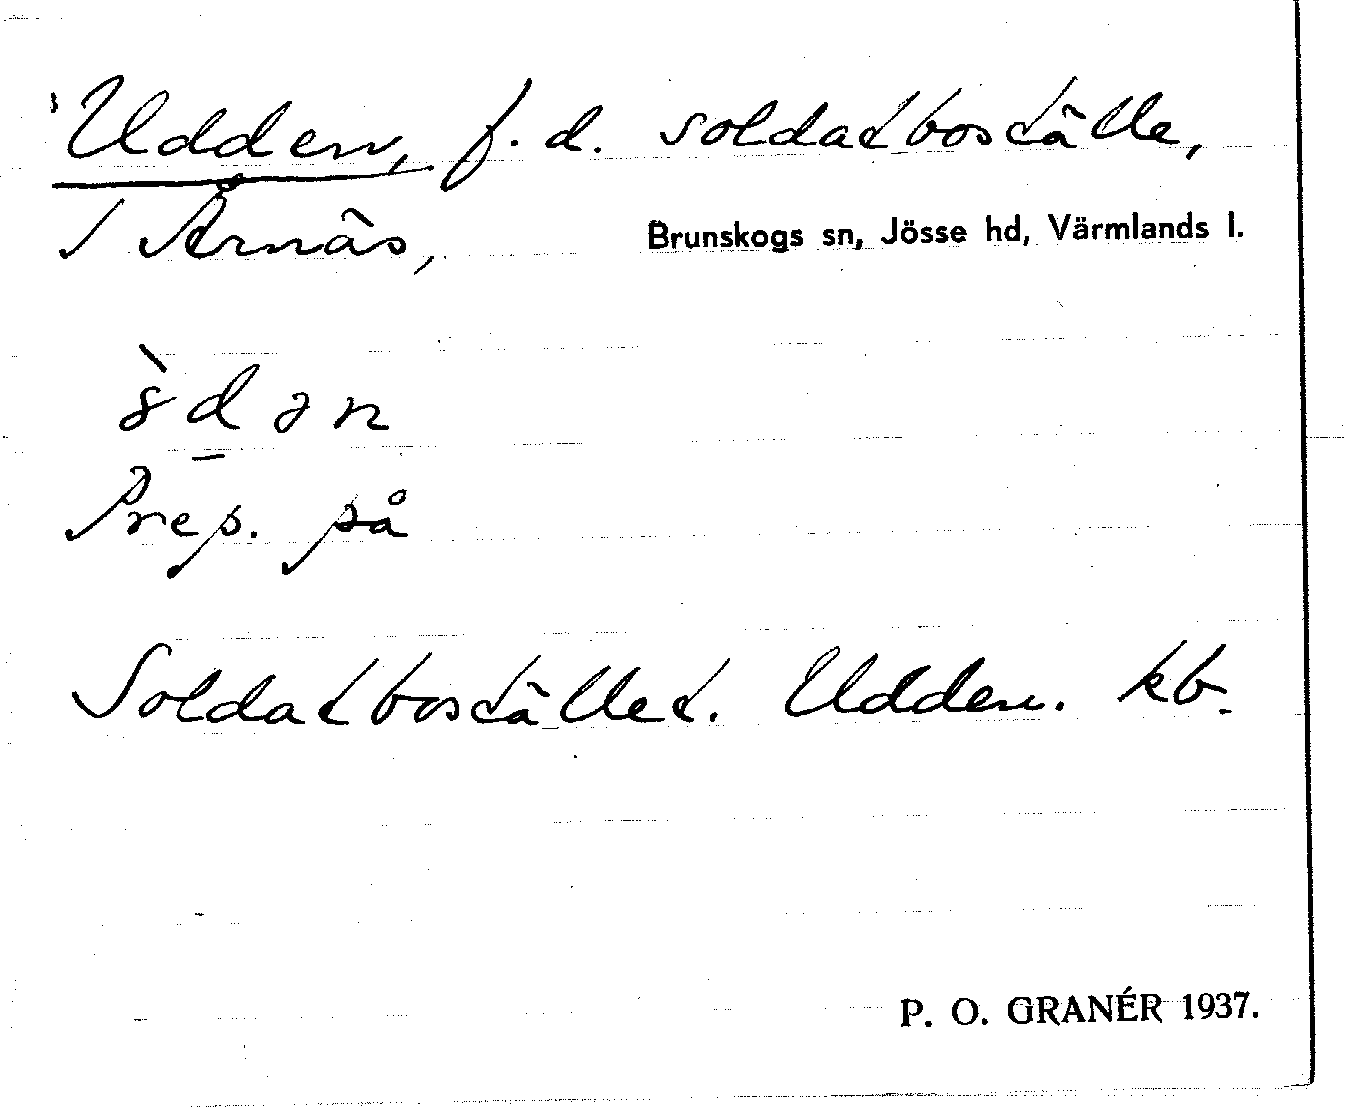 Udden, f. d. soldatboställe,
/ Årnäs, Brunskogs sn, Jösse hd, Värmlands l.
Prep. på
Soldatbostället. Udden. kb.
P. O. GRANÉR 1937.